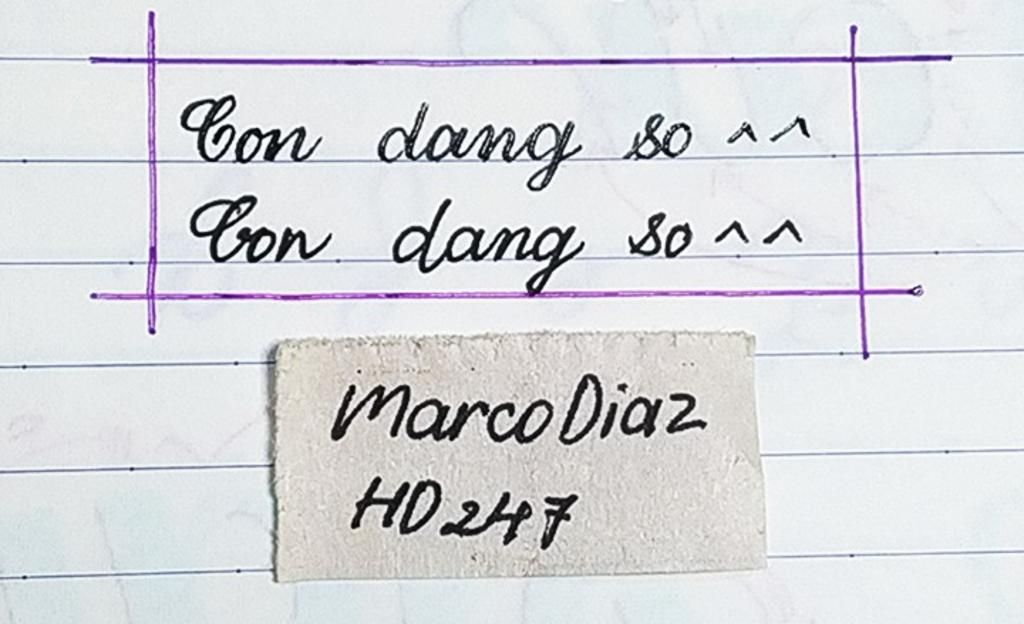 Con dang so ^^
Con dang so ^^
MarcoDiaz
HD247